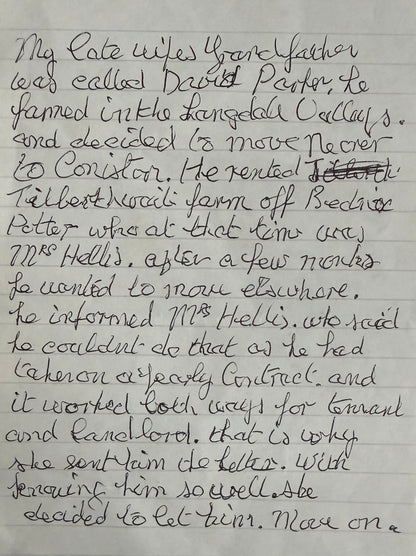 My late wifes Grandfather
was called David Parker, he
farmed in the Langdale Valleys.
and decided to move nearer
to Coniston. He rented
Tilberthwaite farm off Bedrix
Potter who at that time was
Mrs Hellis. after a few months
he wanted to move elswhere.
he informed Mrs Hellis. who said
he couldnt do that as he had
taken on a yearly Contract. and
it worked both ways for tennant
and landlord. that is why
she sent him the letter. With
knowing him so well. she
decided to let him. Move on.